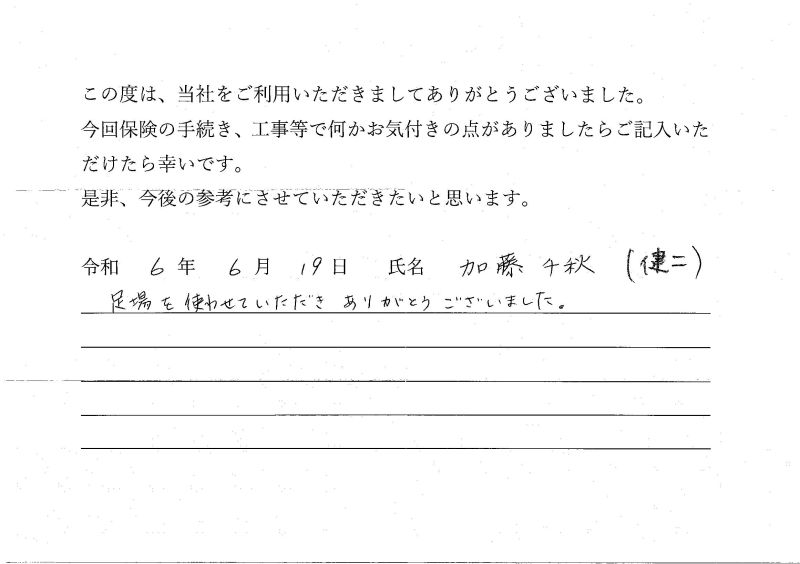 この度は、当社をご利用いただきましてありがとうございました。
今回保険の手続き、工事等で何かお気付きの点がありましたらご記入いた
だけたら幸いです。
是非、今後の参考にさせていただきたいと思います。
令和 6 年 6 月 19 日 氏名 加藤 千秋 (健二)
足場を使わせていただき ありがとうございました。